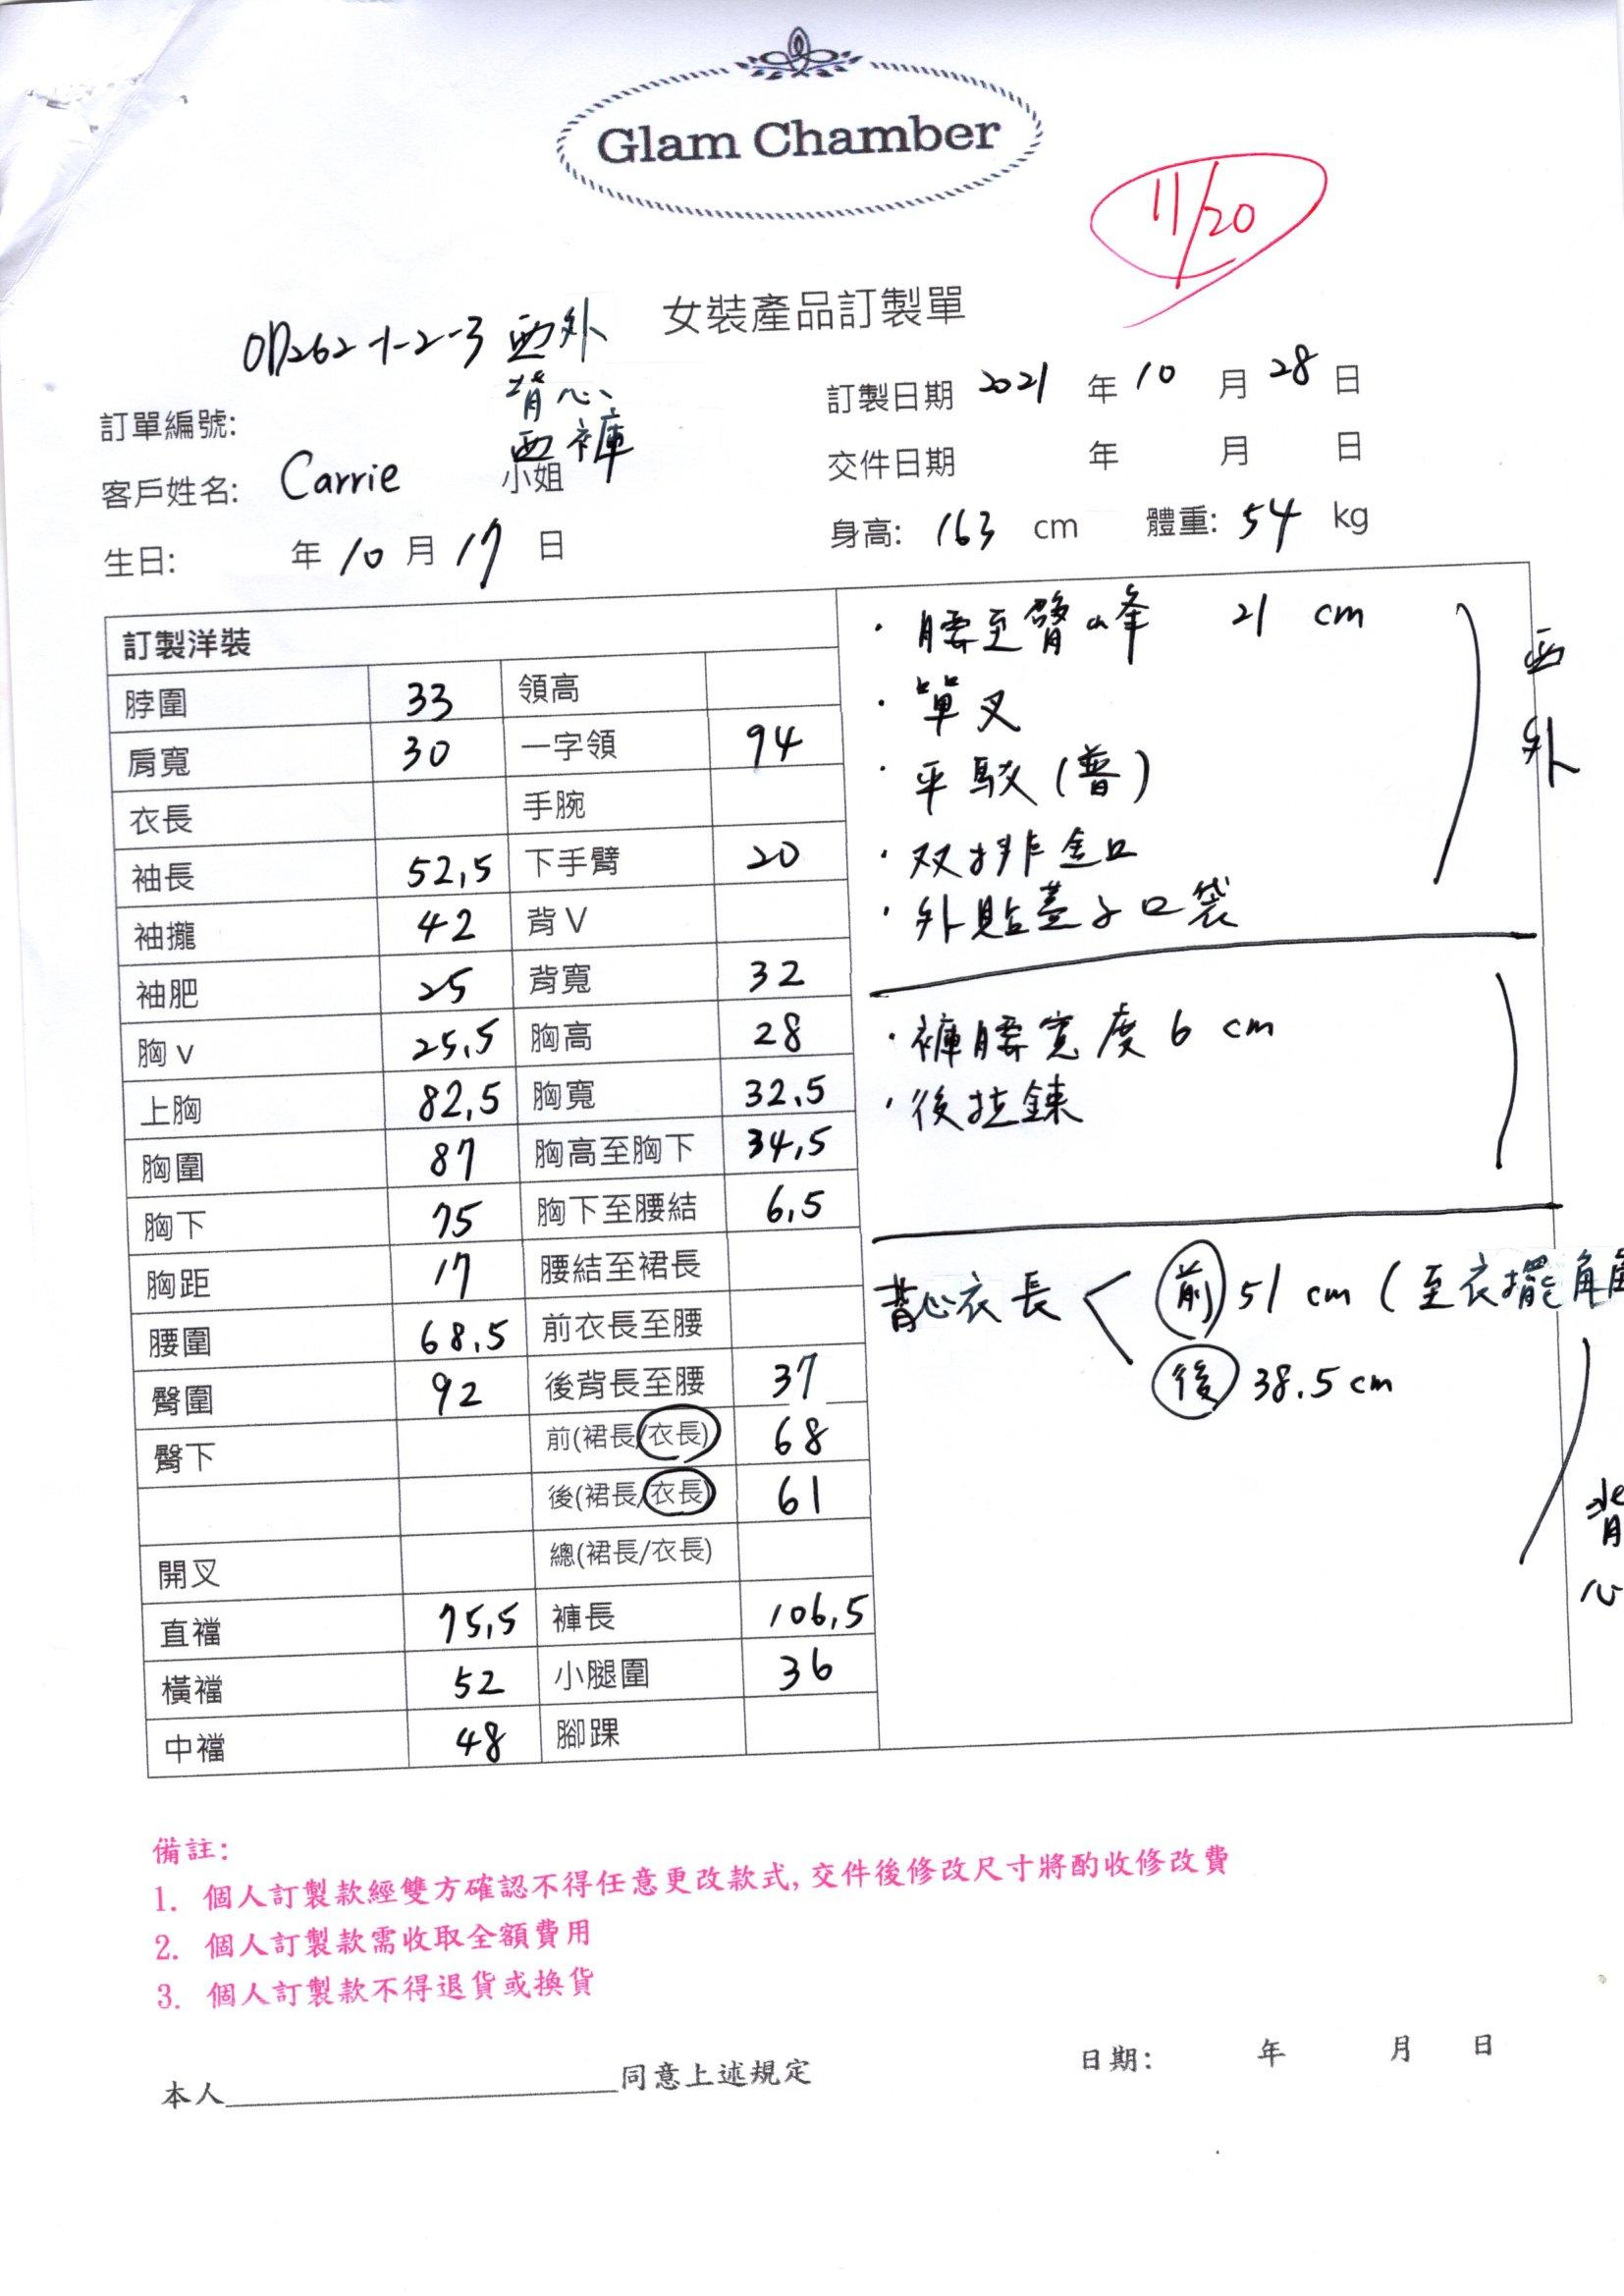 Glam Chamber
11/20
女裝產品訂製單
OD262-1-2-3 西外
背心
西褲
訂單編號:
訂製日期 2021 年 10 月 28 日
客戶姓名: Carrie 小姐
交件日期 年 月 日
生日: 年 10 月 17 日
身高: 163 cm 體重: 54 kg
訂製洋裝
脖圍 33 領高
肩寬 30 一字領 94
衣長 手腕
袖長 52.5 下手臂 20
袖攏 42 背V
袖肥 25 背寬 32
胸v 25.5 胸高 28
上胸 82.5 胸寬 32.5
胸圍 87 胸高至胸下 34.5
胸下 75 胸下至腰結 6.5
胸距 17 腰結至裙長
腰圍 68.5 前衣長至腰
臀圍 92 後背長至腰 37
臀下 前(裙長/衣長) 68
後(裙長/衣長) 61
開叉 總(裙長/衣長)
直襠 75.5 褲長 106.5
橫襠 52 小腿圍 36
中襠 48 腳踝
·腰至臀山峯 21 cm
·單叉
·平駁(普)
·双排釦
·外貼蓋子口袋
西外
·褲腰寬度 6 cm
·後拉鍊
背心衣長 < 前 51 cm (至衣擺角
後 38.5 cm
背心
備註:
1. 個人訂製款經雙方確認不得任意更改款式,交件後修改尺寸將酌收修改費
2. 個人訂製款需收取全額費用
3. 個人訂製款不得退貨或換貨
本人 同意上述規定
日期: 年 月 日